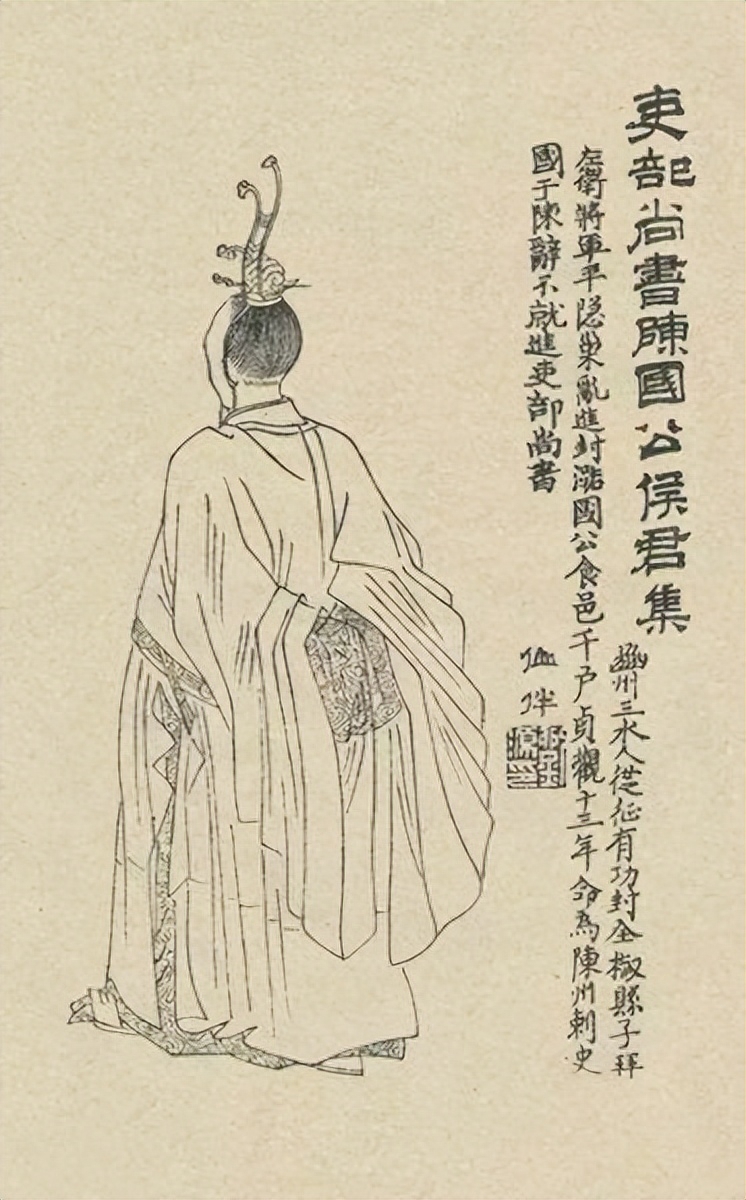 吏部尚書陳國公侯君集
豳州三水人從征有功封全椒縣子拜
左衛將軍平隱巢亂進封潞國公食邑千户貞觀十三年命為陳州刺史
國于陳辭不就進吏部尚書
仙伴